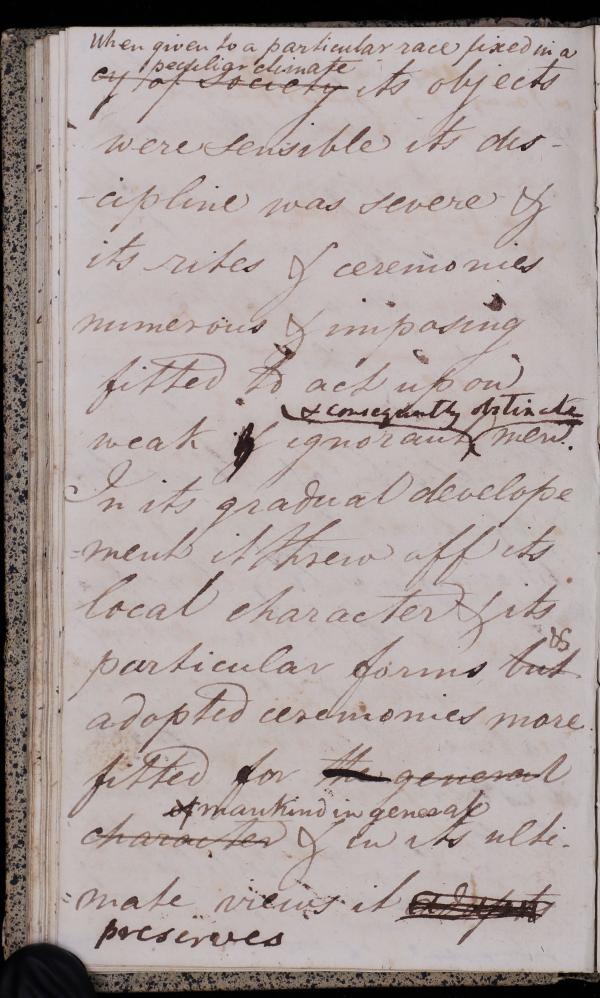 When given to a particular race fixed in a
peculiar climate
cy of society its objects
were sensible its dis-
-cipline was severe &
its rites & ceremonies
numerous & imposing
fitted to act upon
& consequently obstinate
weak & ignorant men.
In its gradual develope
=ment it threw off its
local character & its
particular forms but &
adopted ceremonies more
fitted for the general
of mankind in general
character & in its ulti-
=mate views it adopts
preserves